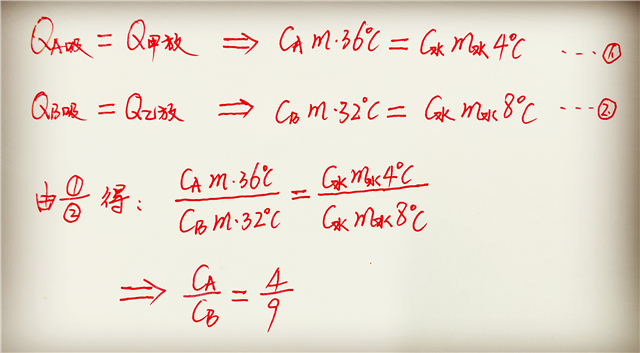 Q_A吸 = Q_甲放 ⇒ C_A m·36℃ = C_水 m_水 4℃ ---①
Q_B吸 = Q_乙放 ⇒ C_B m·32℃ = C_水 m_水 8℃ ---②
由 ①/② 得: (C_A m·36℃)/(C_B m·32℃) = (C_水 m_水 4℃)/(C_水 m_水 8℃)
⇒ C_A/C_B = 4/9